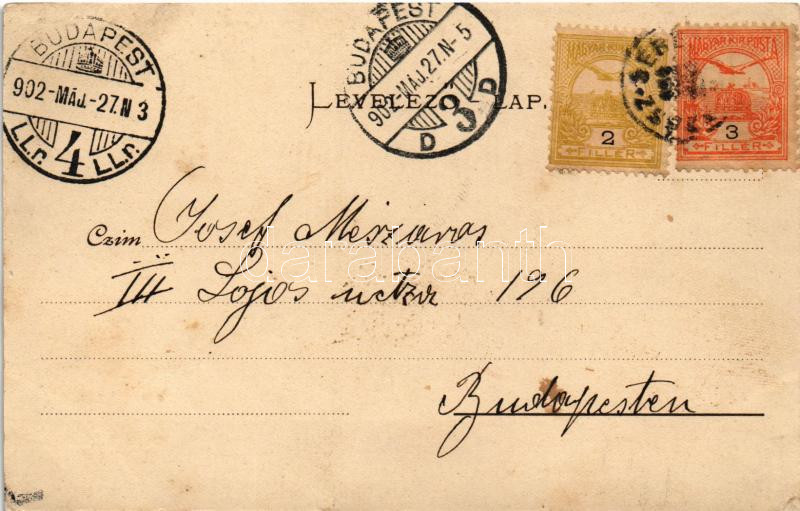 BUDAPEST
902-MÁJ.-27.N 3
4
BUDAPEST
902-MÁJ.27.N-5
D 3 D
LEVELEZŐ LAP.
MAGYAR KIR. POSTA
2
FILLER
MAGYAR KIR. POSTA
3
FILLER
Czim Josef Mészáros
III Lajos utza 196
Budapesten
darabanth